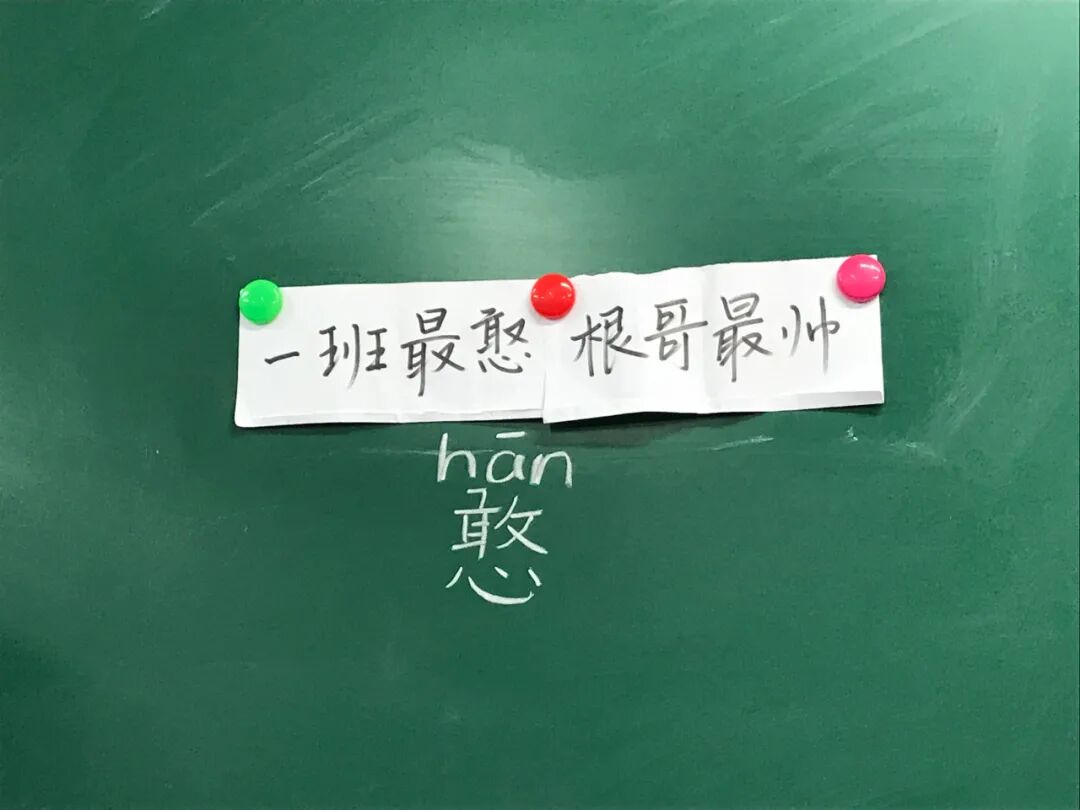 一班最憨 根哥最帅
hān
憨